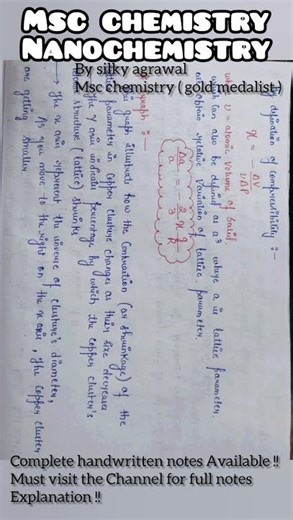 MSC CHEMISTRY
NANOCHEMISTRY
By silky agrawal
Msc chemistry ( gold medalist )
definition of compressibility :-
x = ΔV / VΔP
where v = atomic volume of solid
which can also be defined as a³ where a is lattice parameter.
we obtain relative variation of lattice parameter.
Δa / a = 2 x γ / 3 R
graph :-
graph illustrate how the contraction (or shrinkage) of the
parameter in copper cluster changes as their size decreases
The Y axis indicate percentage by which the copper cluster's
structure (lattice) shrinks
→ The x axis represent the inverse of cluster's diameter,
As you move to the right on the x axis, the copper cluster
are getting smaller.
Complete handwritten notes Available !!
Must visit the Channel for full notes
Explanation !!